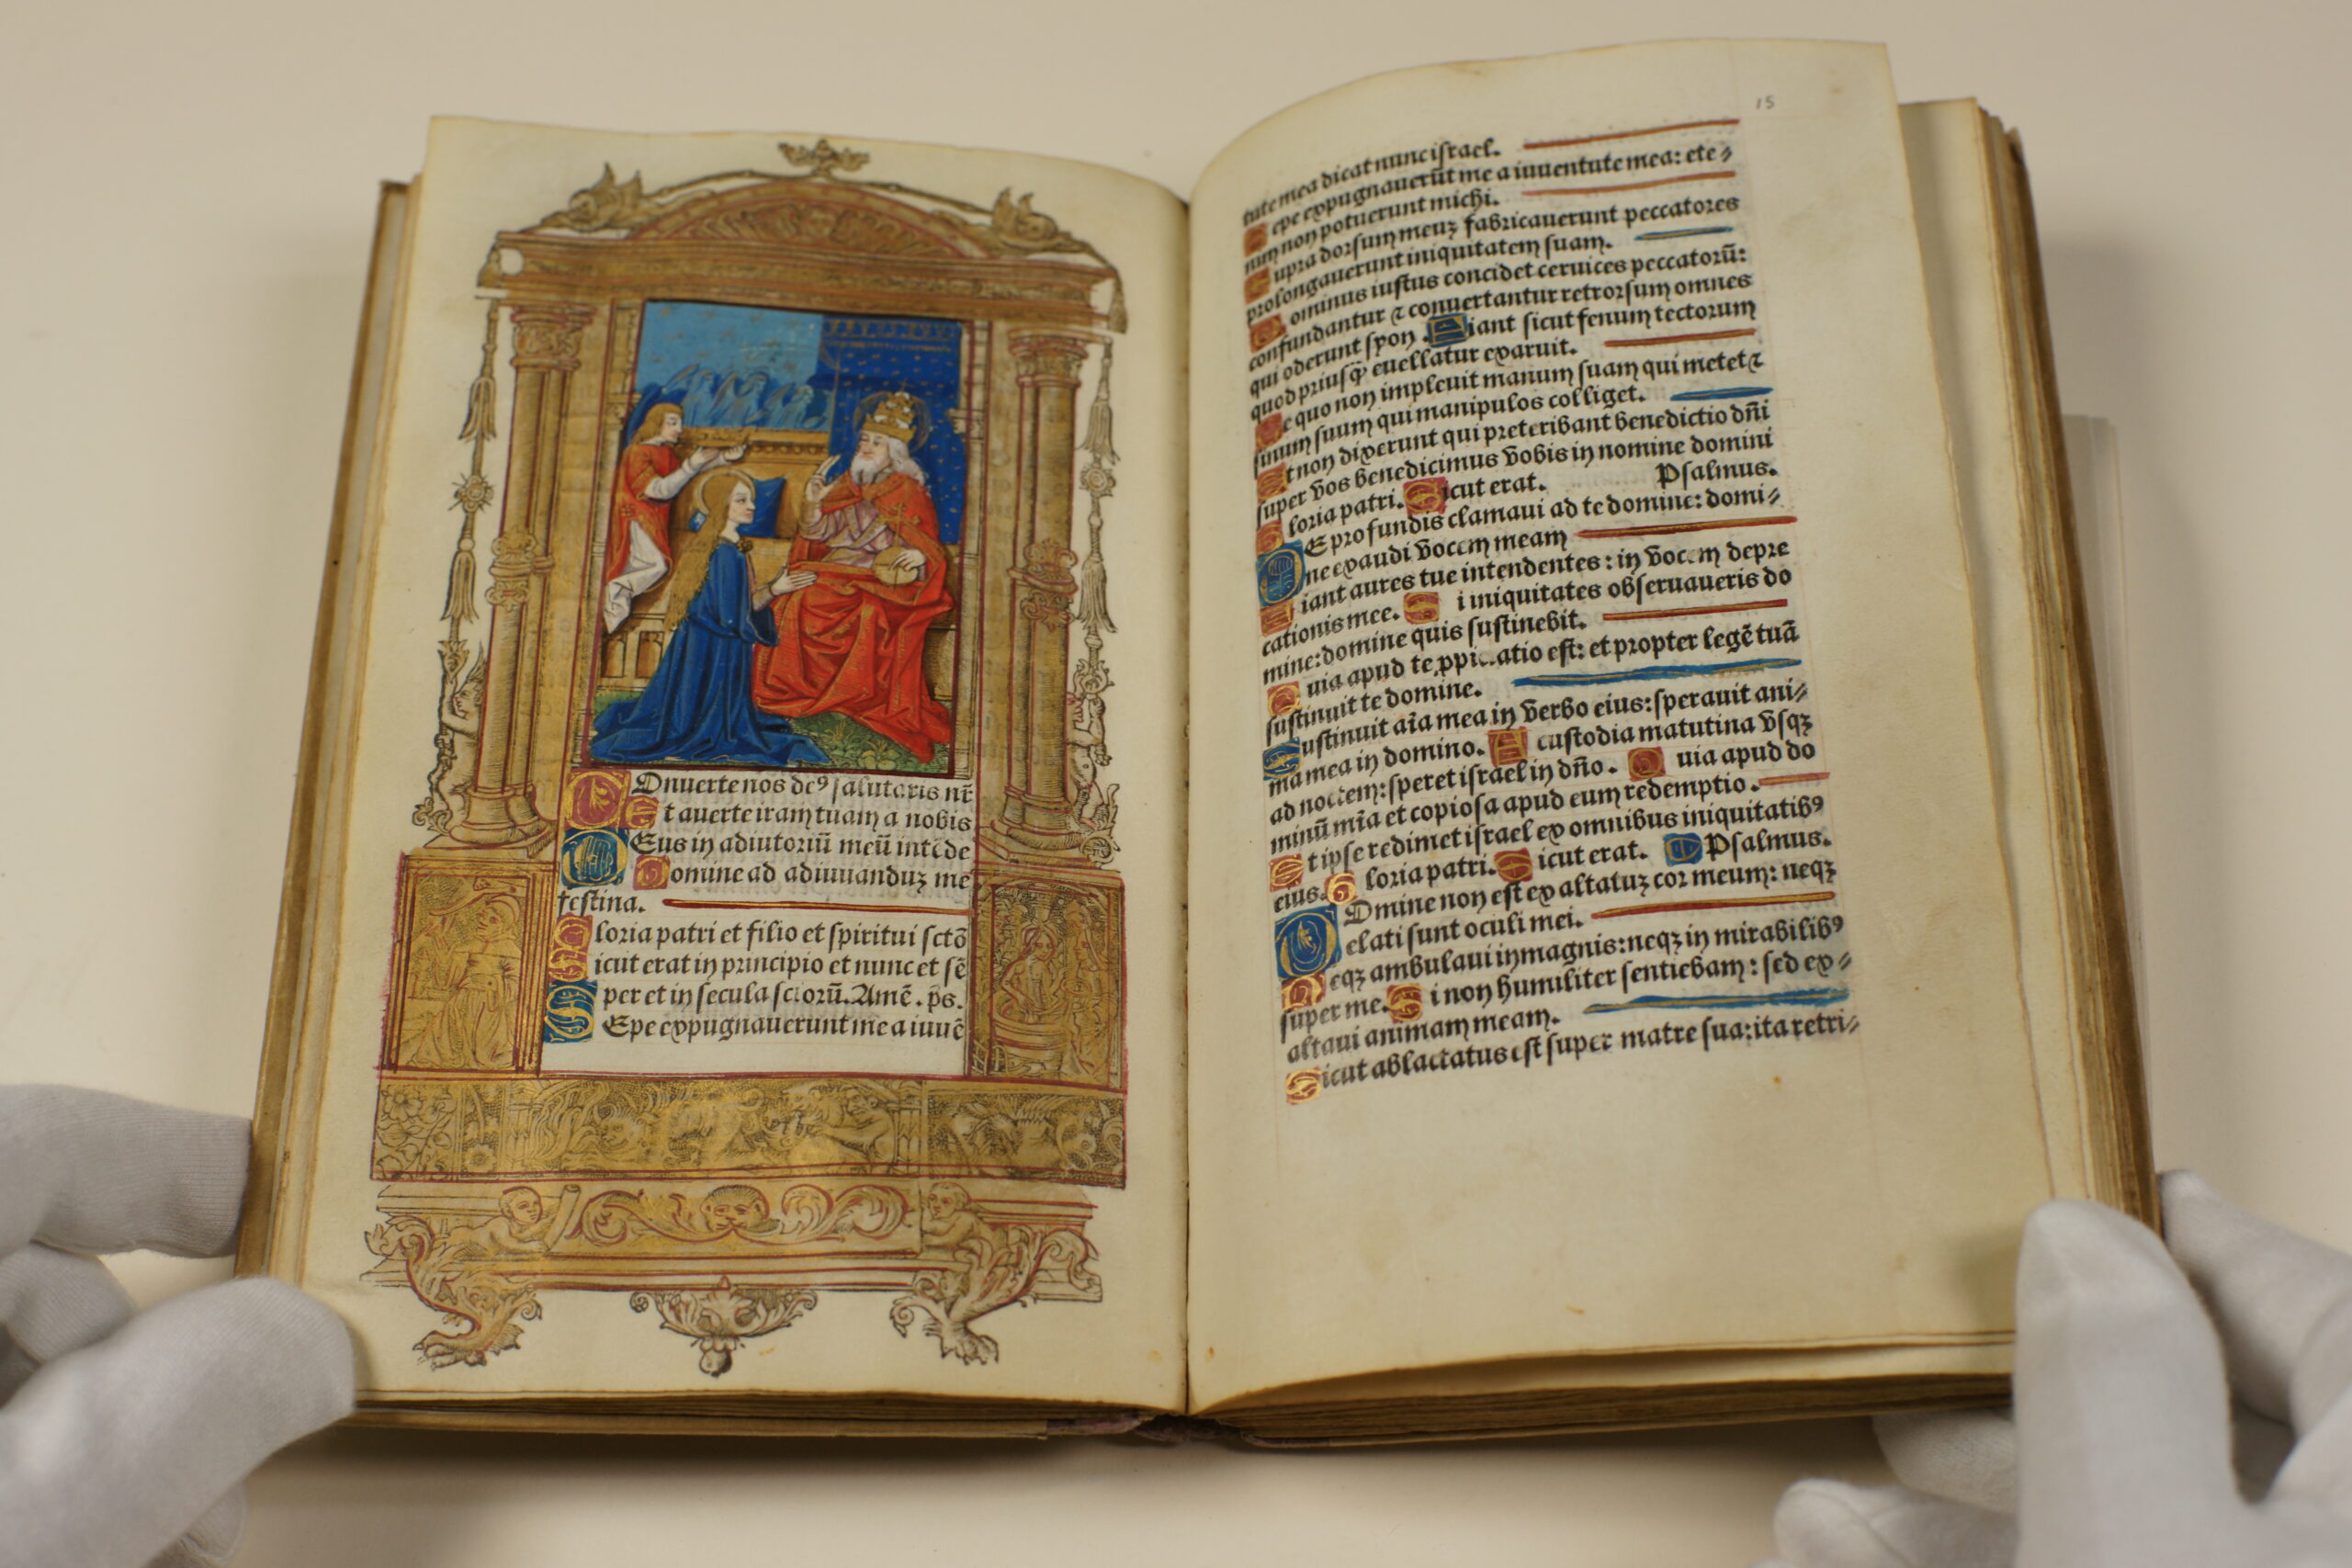 Conuerte nos de⁹ salutaris nr̄
Et auerte iram tuam a nobis
Deus in adiutoriū meū intēde
Domine ad adiuuanduȝ me
festina.
Gloria patri et filio et spiritui sctō
Sicut erat in principio et nunc et sē
per et in secula sclorū. Amē. p̄s.
SEpe expugnauerunt me a iuuē
15
tute mea dicat nunc israel.
Sepe expugnauerūt me a iuuentute mea: ete⸗
nim non potuerunt michi.
Supra dorsum meuȝ fabricauerunt peccatores
prolongauerunt iniquitatem suam.
Dominus iustus concidet ceruices peccatorū:
confundantur ⁊ conuertantur retrorsum omnes
qui oderunt syon. Fiant sicut fenum tectorum
quod priusq̄ euellatur exaruit.
De quo non impleuit manum suam qui metet ⁊
sinum suum qui manipulos colliget.
Et non dixerunt qui preteribant benedictio dn̄i
super vos benedicimus vobis in nomine domini
Gloria patri. Sicut erat. Psalmus.
DE profundis clamaui ad te domine: domi⸗
ne exaudi vocem meam
Fiant aures tue intendentes: in vocem depre
cationis mee. Si iniquitates obseruaueris do
mine: domine quis sustinebit.
Quia apud te ꝓpiciatio est: et propter legē tuā
sustinui te domine.
Sustinuit aīa mea in verbo eius: sperauit ani⸗
ma mea in domino. A custodia matutina vsqȝ
ad noctem: speret israel in dn̄o. Quia apud do
minū mīa et copiosa apud eum redemptio.
Et ipse redimet israel ex omnibus iniquitatib⁹
eius. Gloria patri. Sicut erat. Psalmus.
DOmine non est exaltatuȝ cor meum: neqȝ
elati sunt oculi mei.
Neqȝ ambulaui in magnis: neqȝ in mirabilib⁹
super me. Si non humiliter sentiebam: sed ex⸗
altaui animam meam.
Sicut ablactatus est super matre sua: ita retri⸗